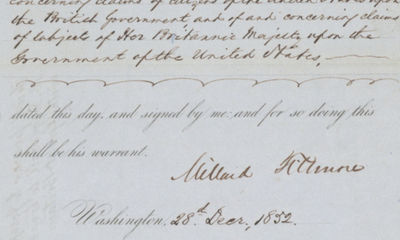 concerning claims of citizens of the United States upon
the British Government and of and concerning claims
of subjects of Her Britannic Majesty upon the
Government of the United States,
dated this day, and signed by me; and for so doing this
shall be his warrant.
Millard Fillmore
Washington, 28.d Decr., 1852.